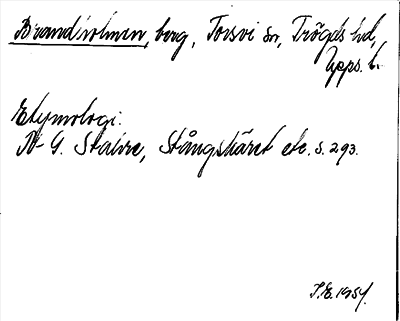 Brandholmen, berg, Torsvi sn, Trögds hd,
Upps. l.
Etymologi:
N-G. Stahre, Stångskäret etc. s. 293.
S.E. 1954.